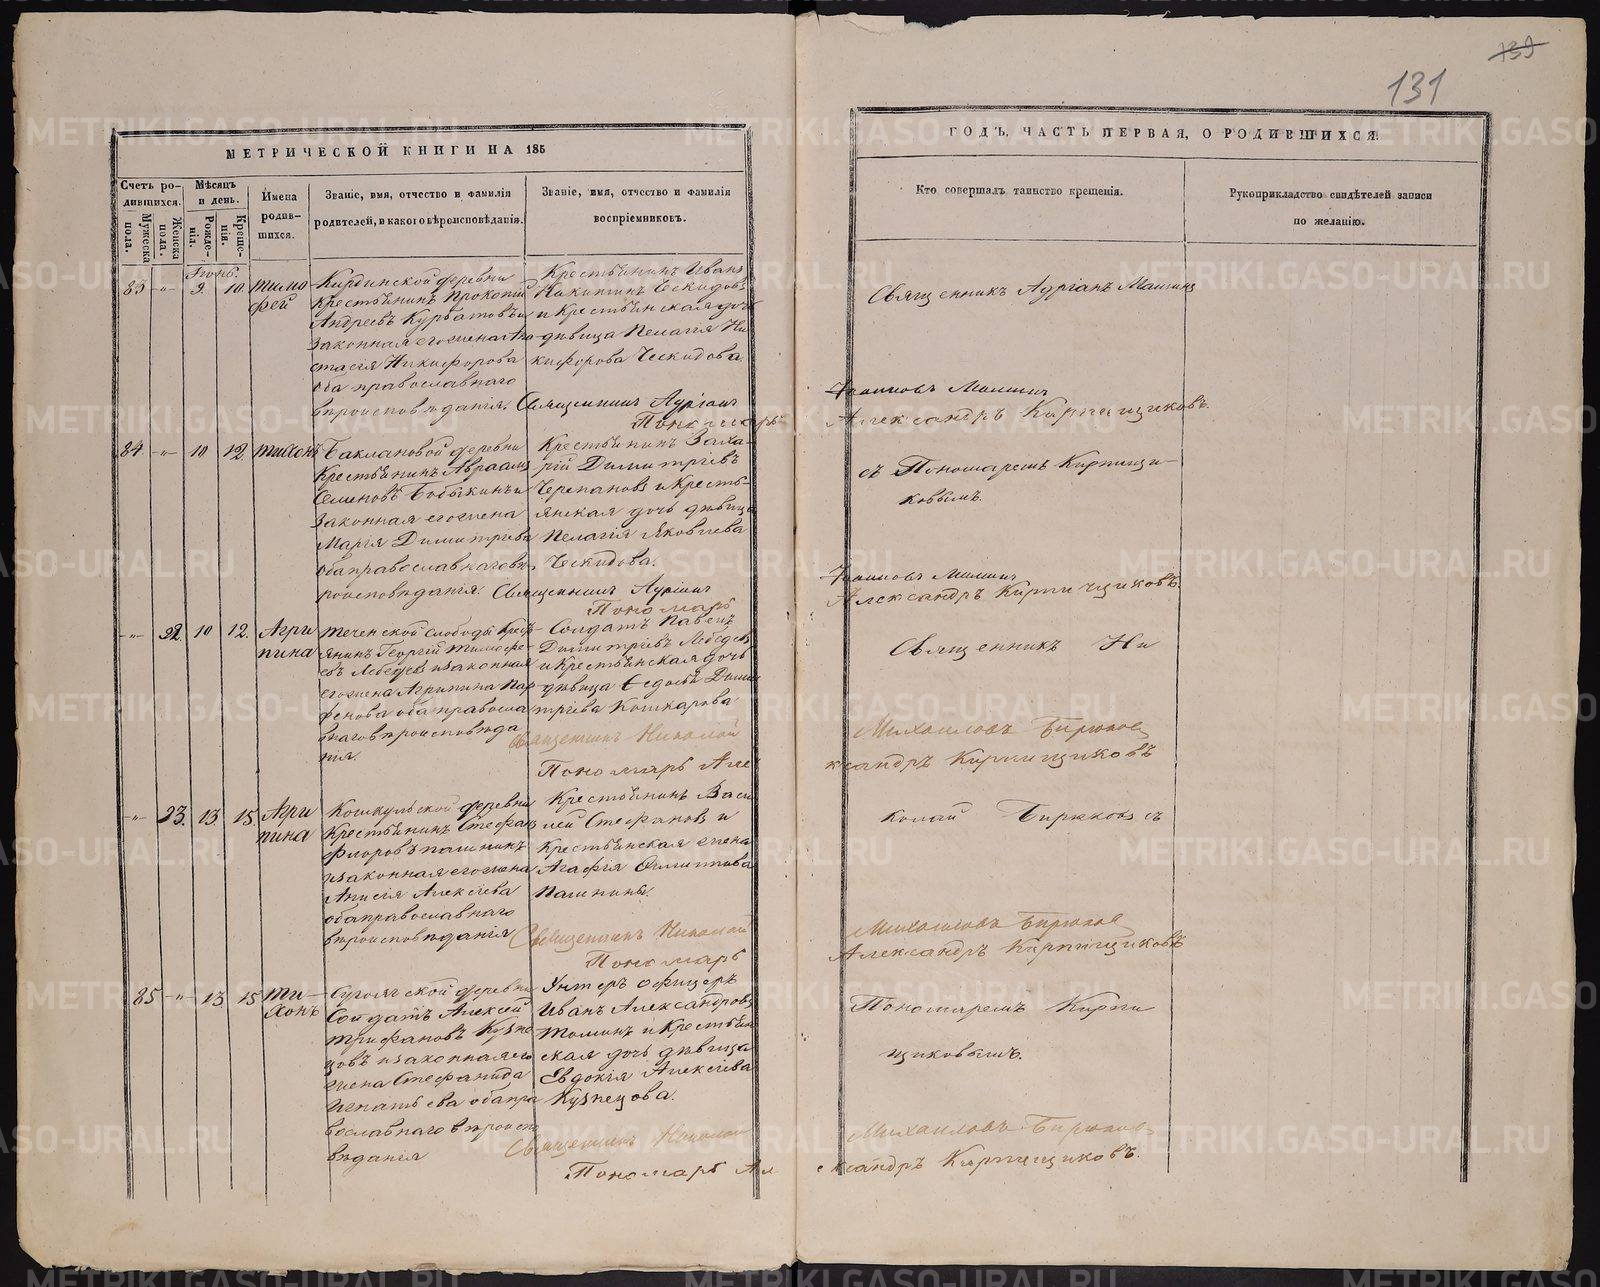 139
131
МЕТРИЧЕСКОЙ КНИГИ НА 185
ГОДЪ, ЧАСТЬ ПЕРВАЯ, О РОДИВШИХСЯ.
Счетъ ро-
дившихся.
Мужеска
пола.
Женска
пола.
Мѣсяцъ
и день.
Рожде-
нія.
Креще-
нія.
Имена
родив-
шихся.
Званіе, имя, отчество и фамилія
родителей, и какого вѣроисповѣданія.
Званіе, имя, отчество и фамилія
воспріемниковъ.
Кто совершалъ таинство крещенія.
Рукоприкладство свидѣтелей записи
по желанію.
Іюнь.
83 -"- 9. 10.
Тимо
фей
Кирдинской деревни
крестьянинъ Прокопій
Андреевъ Курбатовъ и
законная его жена Ана
стасія Никифорова
оба православнаго
вѣроисповѣданія.
Крестьянинъ Иванъ
Никитинъ Ческидовъ
и Крестьянская дочь
дѣвица Пелагія Ни
кифорова Ческидова.
Священникъ Адріанъ Машинъ
Священникъ Адріанъ Іоанновъ Машинъ
Пономарь Александръ Кирпищиковъ.
84 -"- 10 12.
Тихонъ
Баклановой деревни
Крестьянинъ Авраамъ
Семеновъ Бобыкинъ и
законная его жена
Марія Димитріева
оба православнаго вѣ
роисповѣданія.
Крестьянинъ Заха-
рій Димитріевъ
Черепановъ и Кресть-
янская дочь дѣвица
Пелагія Яковлева
Ческидова.
съ Пономаремъ Кирпищи-
ковымъ.
Священникъ Адріанъ Іоанновъ Машинъ
Пономарь Александръ Кирпищиковъ.
-"- 22. 10 12.
Агри
пина
Теченской слободы Крест
янинъ Георгій Тимофе-
евъ Лебедевъ и законная
его жена Агрипина Пар
фенова оба правосла
внаго вѣроисповѣда
нія.
Солдатъ Павелъ
Димитріевъ Лебедевъ
и Крестьянская дочь
дѣвица Ѳедосья Дими
тріева Кошкарова
Священникъ Ни
Священникъ Николай Михаиловъ Бирюковъ
Пономарь Александръ Кирпищиковъ
-"- 23. 13. 15.
Агри
пина
Кошкульской деревни
Крестьянинъ Стефанъ
Флоровъ Пашнинъ
и законная его жена
Анисія Алексѣева
оба православнаго
вѣроисповѣданія
Крестьянинъ Васи
лей Стефановъ и
Крестьянская жена
Агафія
Пашнины.
колай Бирюковъ съ
Священникъ Николай Михаиловъ Бирюковъ
Пономарь Александръ Кирпищиковъ
85 -"- 13 15
Ти-
хонъ
деревни
Солдатъ Алексей
Трифановъ Кузне
цовъ и законная его
жена Стефанида
Игнатьева оба пра
вославнаго вѣроиспо
вѣданія
Унтеръ офицеръ
Иванъ Александровъ
Томинъ и Крестьян
ская дочь дѣвица
Евдокія Алексѣева
Кузнецова.
Пономаремъ Кирпи
щиковымъ.
Священникъ Николай Михаиловъ Бирюковъ
Пономарь Александръ Кирпищиковъ.
METRIKI.GASO-URAL.RU